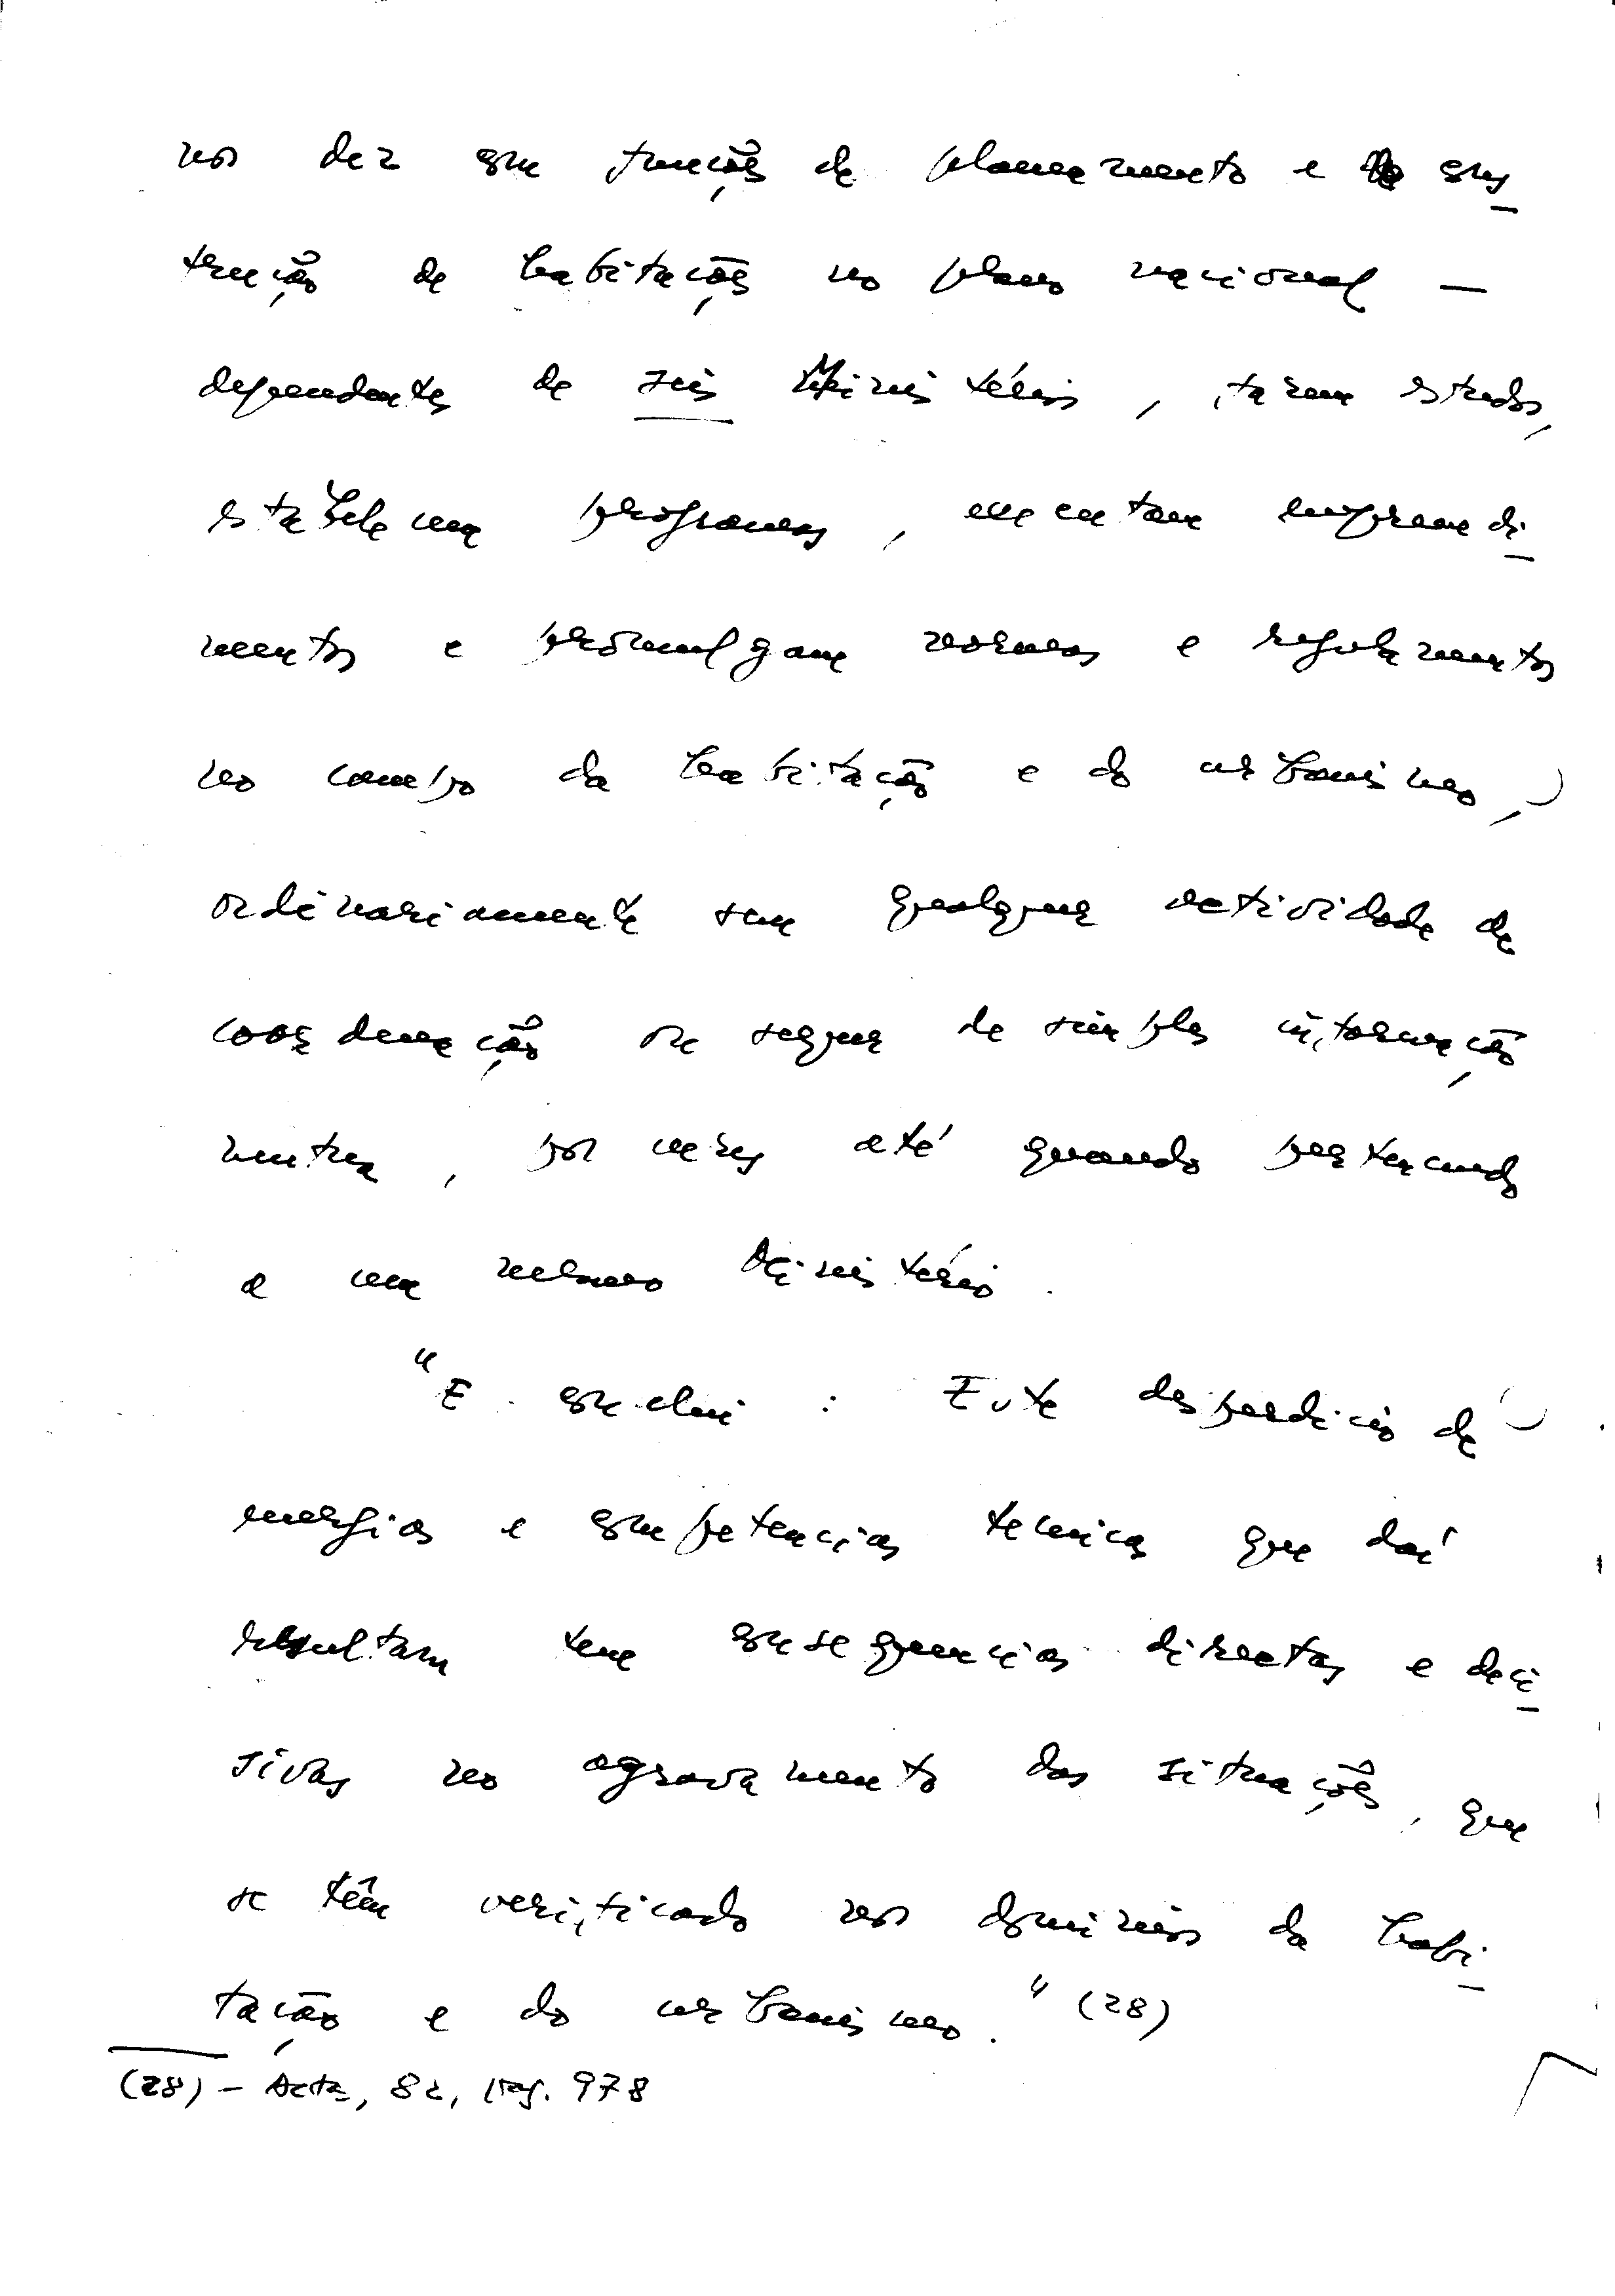 nos dez com funções de planeamento e cons
trução de habitações no plano nacional —
dependentes de seis Ministérios, fazem estudos,
estabelecem programas, executam empreendi
mentos e promulgam normas e regulamentos
no campo da habitação e do urbanismo,
ordinariamente sem qualquer actividade de
coordenação ou sequer de simples informação
mútua, por vezes até quando pertencendo
a um mesmo Ministério.
"E conclui: Este desperdício de
energias e competencias técnicas que daí
resultam tem consequencias directas e deci
sivas no agravamento das situações, que
se têm verificado nos domínios da habi
tação e do urbanismo." (28)
(28) – Acta, 82, pag. 978